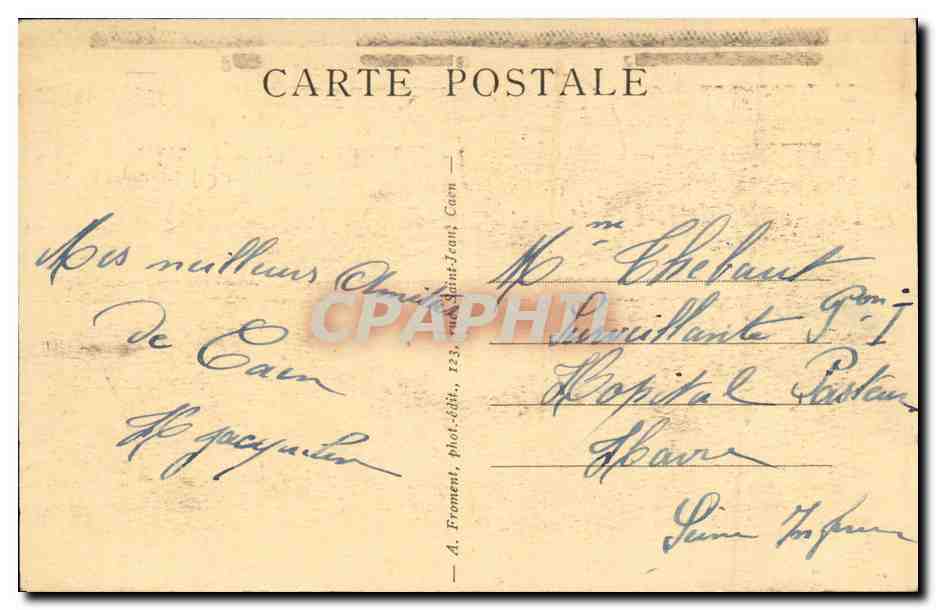 CARTE POSTALE
Mes meilleurs Amitiés
de Caen
H Jacquelin
— A. Froment, phot.-édit., 123, rue Saint-Jean, Caen —
Mme Thébaut
Surveillante
Hopital Pasteur
Havre
Seine Infre
CPAPHIL